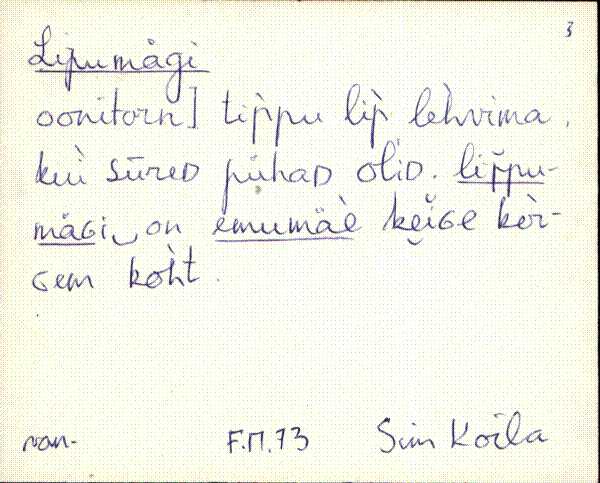 3
Lipumägi
oonitorn] tìppu lìp̀ lèhvima.
kuì sūreD pühaD oliD. lip̆pu-
mäGi‿on emumäè kĕiGe kèr-
Gem kòht.
F.M.73 Sim Koila